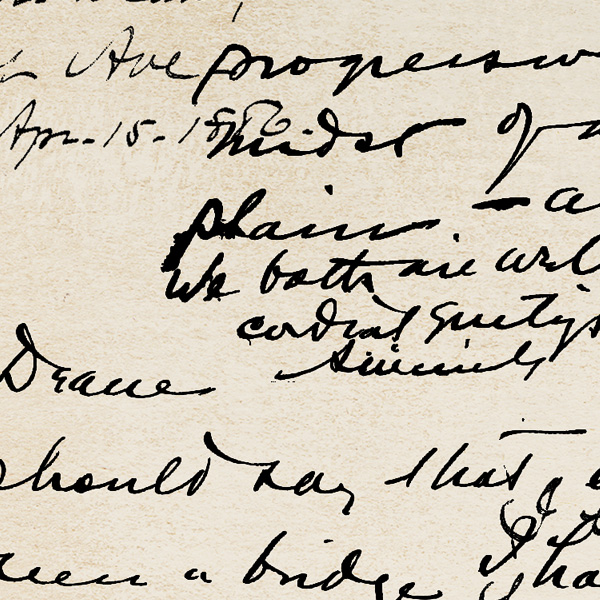 Ave progressiv
Apr. 15. 18
midst of a
plain — a
We both are well
cordial greetings
Sincerely
Deane
should say that
seen a bridge I ha